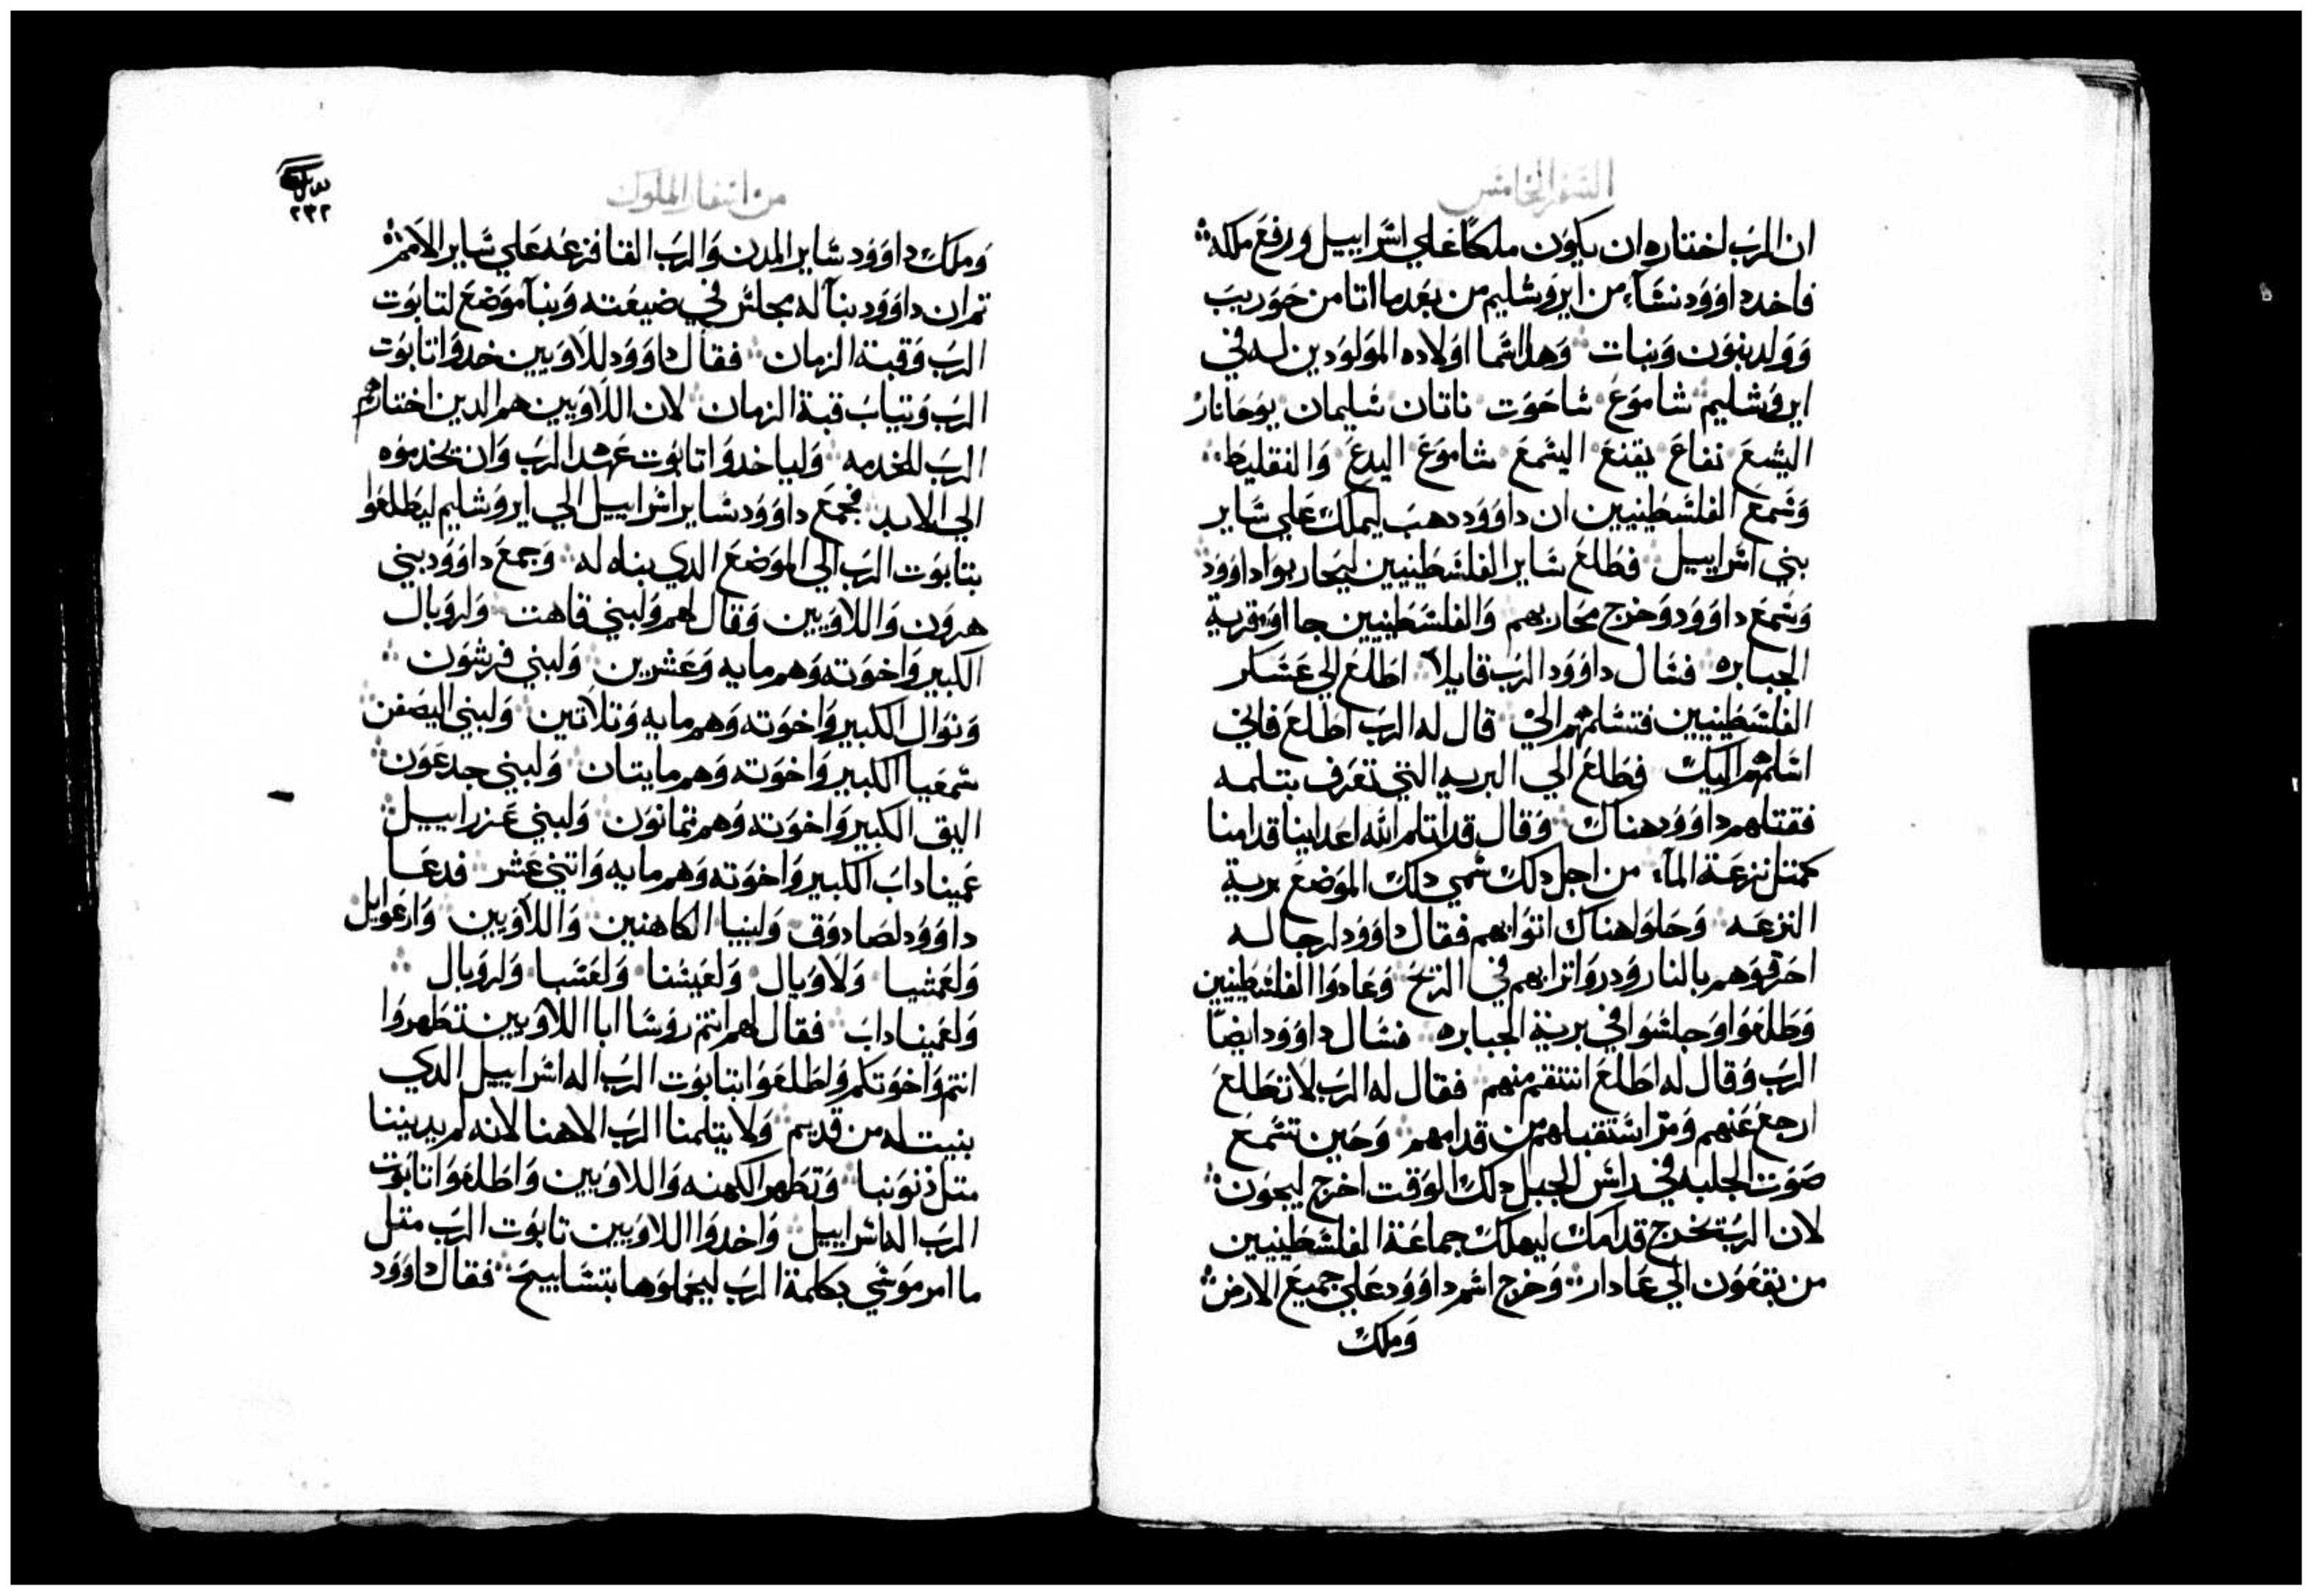 السفر الخامس
ان الرب اختاره ان يكون ملكًا علي اسراييل ورفع ملكه
فاخد داوود نسآء من ايروشليم من بعد ما اتا من حوريب
وولد بنون وبنات وهدا اسما اولاده المولودين له في
ايروشليم شاموع شاحوت ناتان سليمان يوحانار
اليشع نفاع يقنع اليشمع شاموع اليدع والنقليط
وسمع الفلسطينيين ان داوود دهب ليملك علي ساير
بني اسراييل فطلع ساير الفلسطينيين ليحاربوا داوود
وسمع داوود وخرج محاربهم والفلسطينيين جااو بقرية
الجبابره فسال داوود الرب قايلاً اطلع الي عسكر
الفلسطينيين فتسلمهم الي قال له الرب اطلع فاني
اسلمهم اليك فطلع الي البريه التي تعرف بتلمه
فقتلهم داوود هناك وقال قد اتلم الله اعداينا قدامنا
كمتل نزعة المآء من اجل دلك سمي دلك الموضع برية
النزعه وحلوا هناك اتوابهم فقال داوود لرجاله
احرقوهم بالنار ودروا ترابهم في الريح وعادوا الفلسطينيين
وطلعوا وجلسوا في برية الجبابره فسال داوود ايضًا
الرب وقال له اطلع انتقم منهم فقال له الرب لا تطلع
ارجع عنهم ومر استقبلهم من قدامهم وحين تسمع
صوت الجلبه في راس الجبل دلك الوقت اخرج ليحون
لان الرب يخرج قدامك ليهلك جماعة الفلسطينيين
من بقعون الي عادار وخرج اسم داوود علي جميع الارض
وملك
من اسفار الملوك
٢٣٢
وملك داوود ساير المدن والرب القا فزعه علي ساير الامم
تم ان داوود بنا له مجلس في ضيعته وبنا موضع لتابوت
الرب وقبة الزمان فقال داوود للاويين خدوا تابوت
الرب وتياب قبة الزمان لان اللاويين هم الدين اختارهم
الرب للخدمه ولياخدوا تابوت عهد الرب وان يخدموه
الي الابد فجمع داوود ساير اسراييل الي ايروشليم ليطلعوا
بتابوت الرب الي الموضع الدي بناه له وجمع داوود بني
هرون واللاويين وقال لهم ولبني قاهت ولروبال
الكبير واخوته وهم مايه وعشرين ولبني فرشون
ونوال الكبير واخوته وهم مايه وتلاتين ولبني اليصفن
شمعيا الكبير واخوته وهم مايتان ولبني جدعون
اليق الكبير واخوته وهم تمانون ولبني عزراييل
عميناداب الكبير واخوته وهم مايه واتني عشر فدعا
داوود لصادوق ولبنيا الكاهنين واللاويين وارعوايل
ولعشيا ولاويال ولعيشنا ولعشبا ولروبال
ولعميناداب فقال لهم انتم روسا ابا اللاويين تطهروا
انتم واخوتكم واطلعوا بتابوت الرب اله اسراييل الدي
بنيت له من قديم ولا يتلمنا الرب الاهنا لانه لم يديننا
متل دنوبنا وتطهر الكهنه واللاويين واطلعوا تابوت
الرب اله اسراييل واخدوا اللاويين تابوت الرب متل
ما امر موسي بكلمة الرب ليحملوها بتسابيح فقال داوود